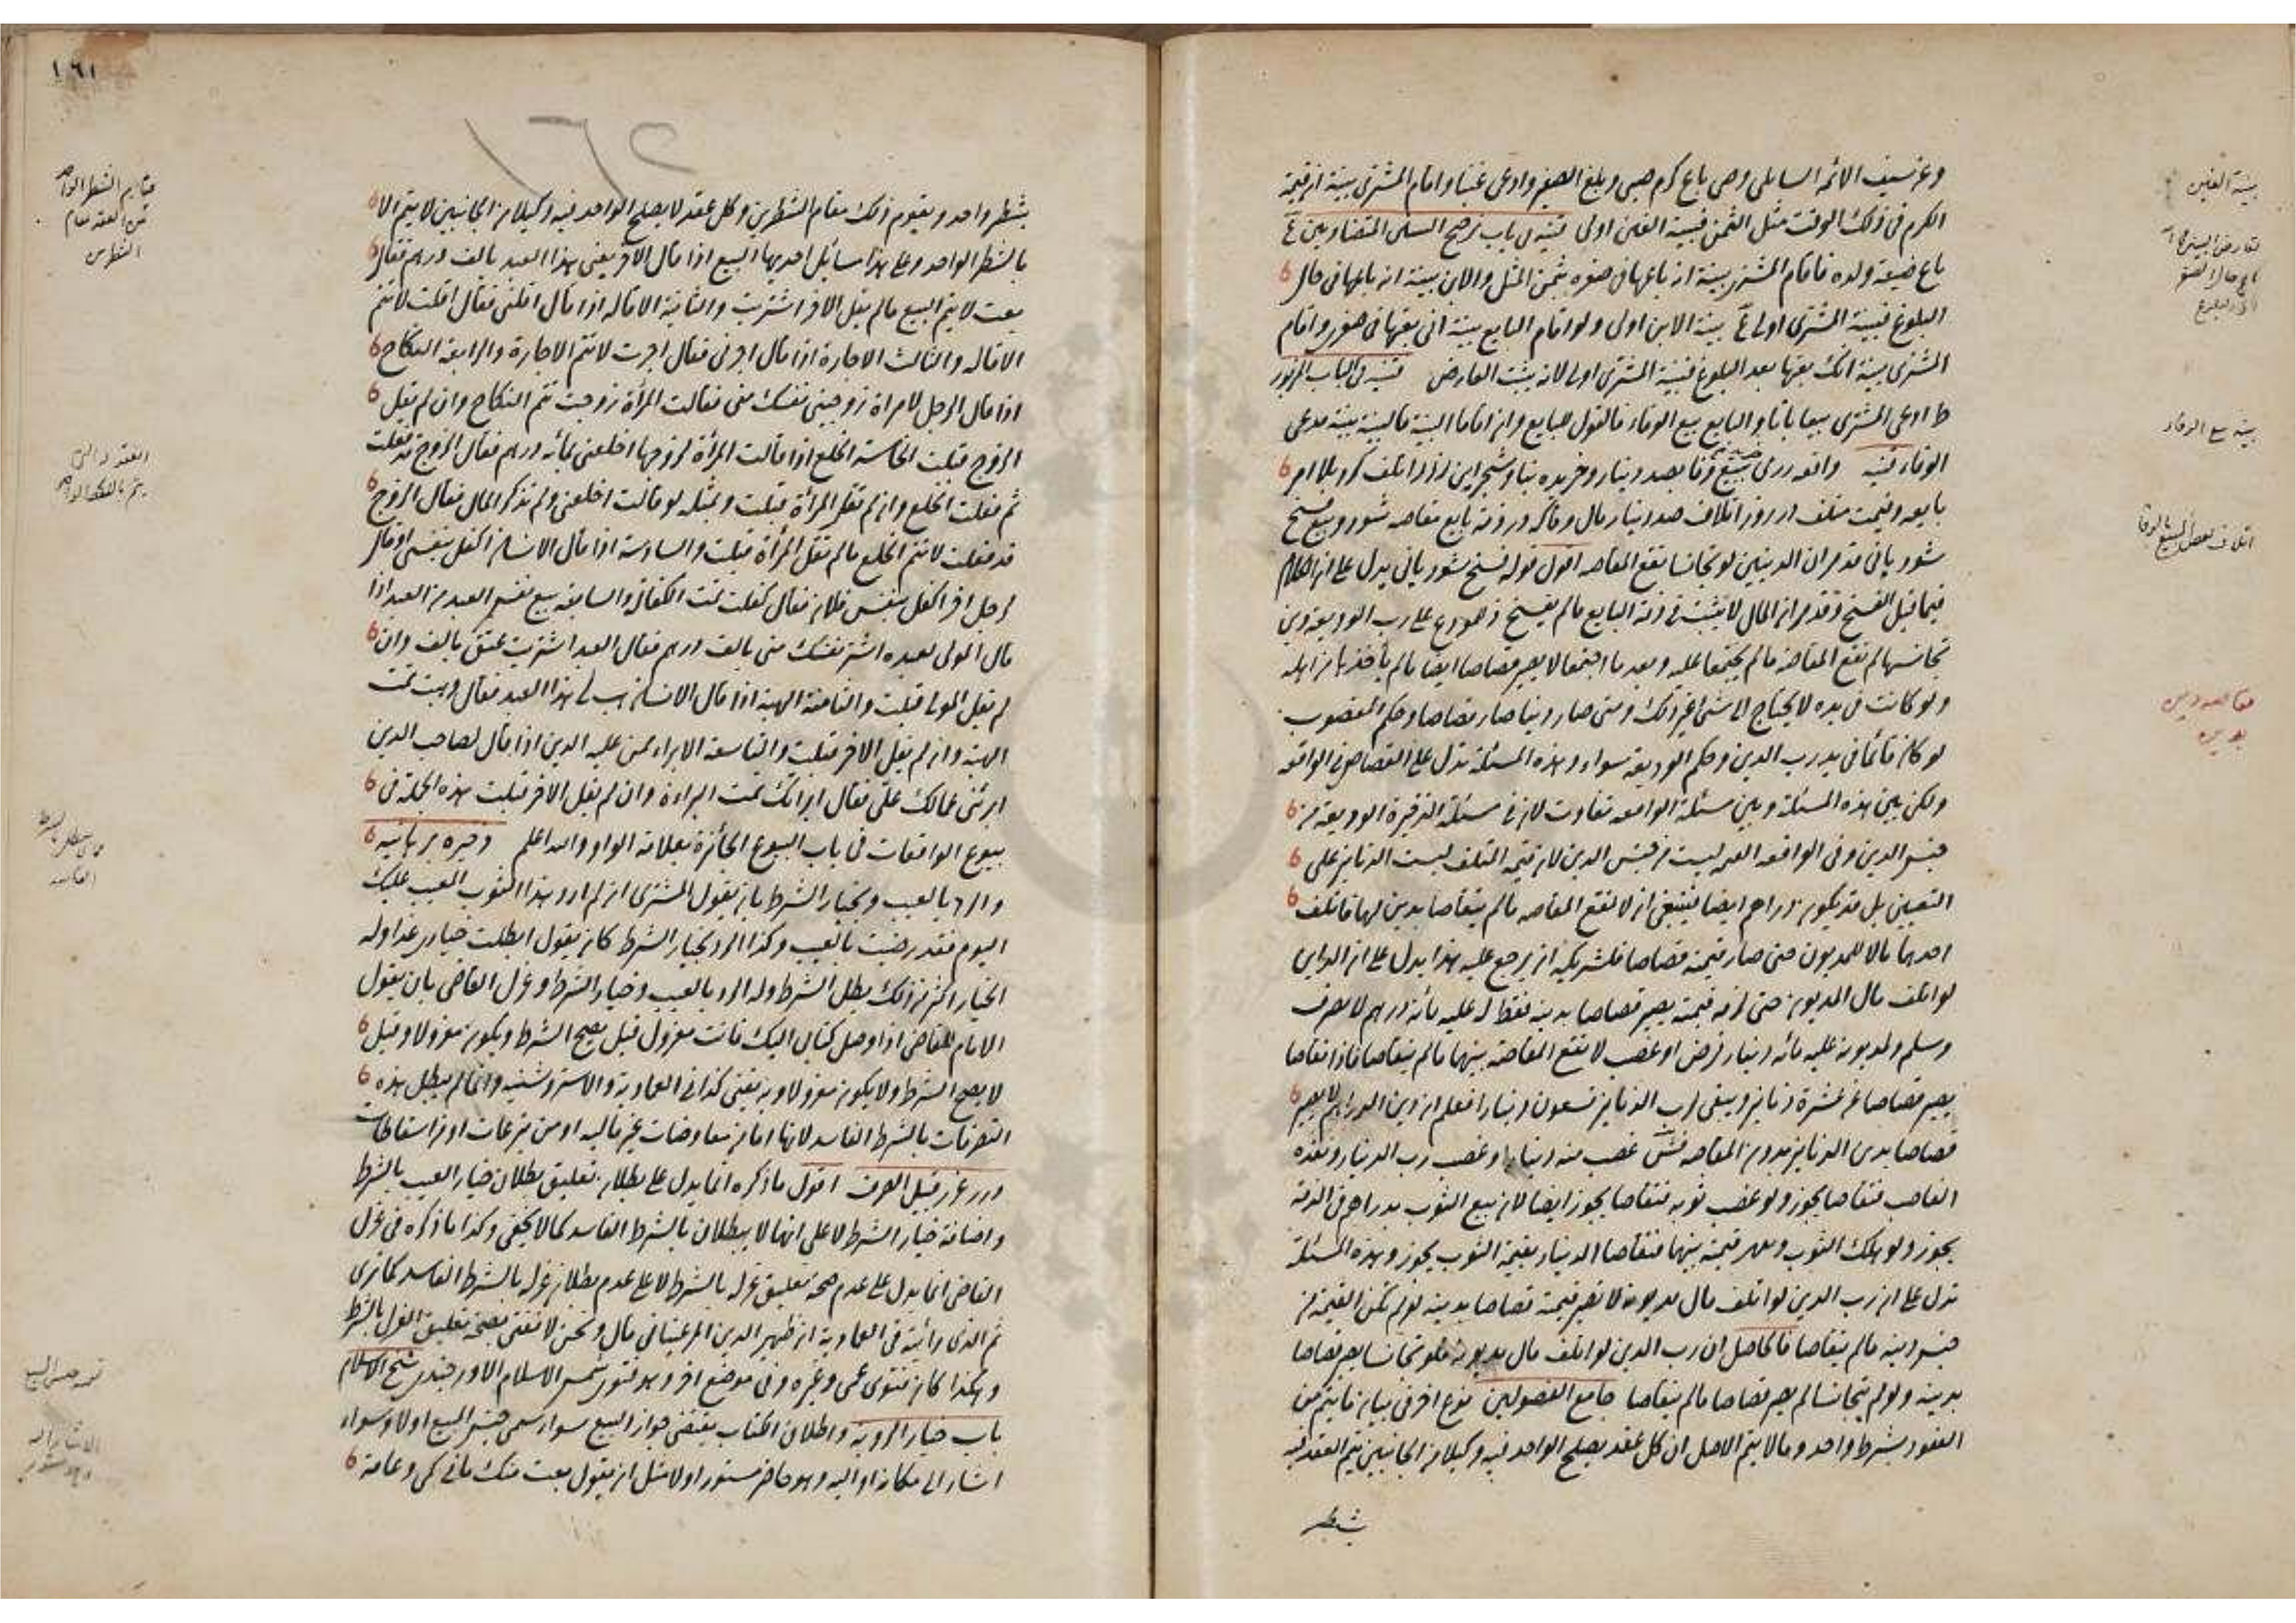 وعن سيف الائمة السايلى وصى باع كرم صبى وبلغ الصغير وادعى غبنا واقام المشترى بينة ان قيمة
الكرم فى ذلك الوقت مثل الثمن فبينة الغبن اولى قنيه فى باب ترجيح البينتين المتضادتين
باع ضيعة ولده فاقام المشترى بينة انه باعها فى صغره بثمن المثل والابن بينة انه باعها فى حال
البلوغ فبينة المشترى اولى بينة الابن اولى ولو اقام البايع بينة انى بعتها فى صغرى واقام
المشترى بينة انك بعتها بعد البلوغ فبينة المشترى اولى لانه يثبت العارض قنيه فى الباب المزبور
ط ادعى المشترى بيعا باتا والبايع بيع الوفاء فالقول للبايع وان اقاما البينة فالبينة بينة مدعى
الوفاء قنيه واقعه رزى بيع وفا بصد دينار وخريده بنا وشجر اين رز را تلف كرد بلا امر
بايعه وقيمت متلف در روز اتلاف صد دينار مال وفا كه در ذمة بايع مقاصه شود وبيع فسخ
شود يا نى قد مر ان الدينين لو تجانسا تقع المقاصه اقول قوله فسخ شود يا نى يدل على ان الكلام
فيما قبل الفسخ وقد مر ان المال لا يثبت فى ذمة البايع مالم يفسخ ذ للمودع على رب الوديعة دين
تجانسها لم تقع المقاصة مالم يجتمعا عليه وبعد ما اجتمعا لا يصير قصاصا ايضا مالم يأخذها من اهله
ولو كانت فى يده لا يحتاج الى شئ غير ذلك ومتى صار دينا صار قصاصا وحكم المغصوب
لو كان قائما فى يد رب الدين وحكم الوديعة سواء وهذه المسئلة تدل على القصاص فى الواقعه
ولكن بين هذه المسئلة وبين مسئلة الواقعه تفاوت لان فى مسئلة الذخيرة الوديعة من
جنس الدين وفى الواقعه القيمة ليست من جنس الدين لان قيمة التلف ليست الدنانير على
التعيين بل قد يكون دراهم ايضا فينبغى ان لا تقع المقاصه مالم يتقاصا بدين لهما فاتلف
احدهما مالا للمديون حتى صار قيمته قصاصا فلشريكه ان يرجع عليه هذا يدل على ان الداين
لو اتلف مال المديون حتى لزمه قيمته يصير قصاصا بدينه فقط له عليه مائة درهم لا يعرف
وسلم ولمديونه عليه مائة دينار قرض او غصب لا تقع المقاصة بينهما مالم يتقاصا فاذا تقاصا
يصير قصاصا عن عشرة دنانير ويبقى لرب الدنانير تسعون دينارا فعلم ان دين الدراهم لا يصير
قصاصا بدين الدنانير بدون المقاصه فش غصب منه دينارا وغصب رب الدينار ونقده
الغاصب فتقاصا يجوز ولو غصب ثوبه فتقاصا يجوز ايضا لان بيع الثوب بدراهم فى الذمة
يجوز ولو هلك الثوب وبعد قيمته بينهما فتقاصا الدينار بقيمة الثوب يجوز وهذه المسئلة
تدل على ان رب الدين لو اتلف مال مديونه لا تصير قيمته قصاصا بدينه لو لم تكن القيمة من
جنس دينه مالم يتقاصا فالحاصل ان رب الدين لو اتلف مال مديونه فلو تجانسا يصير قصاصا
بدينه ولو لم يتجانسا لم يصر قصاصا مالم يتقاصا جامع الفصولين نوع اخر فى بيان ما يتم من
العقود بشرط واحد وما لا يتم الاصل ان كل عقد يصلح الواحد فيه وكيلا من الجانبين يتم العقد فيه
بشطر
بينة الغبن
بينة بيع الوفاء
اتلاف بعض المبيع بالوفا
مقاصه دين
بدين
١٦١
١٦٢
بشطر واحد ويقوم ذلك مقام الشطرين وكل عقد لا يصلح الواحد فيه وكيلا من الجانبين لا يتم الا
بالشطر الواحد وعلى هذا مسائل احديها البيع اذا قال الآخر بعنى هذا العبد بالف درهم فقال
بعت لا يتم البيع مالم يقل الاخر اشتريت والثانية الاقالة اذا قال اقلنى فقال اقلت لا تتم
الاقالة والثالث الاجارة اذا قال اجرنى فقال اجرت لا تتم الاجارة والرابعة النكاح
اذا قال الرجل لامراة زوجينى نفسك منى فقالت المرأة زوجت تتم النكاح وان لم يقل
الزوج قبلت الخامسة الخلع اذا قالت المرأة لزوجها اخلعنى بمائة درهم فقال الزوج قد فعلت
ثم فعلت الخلع وان لم تقل المرأة قبلت وبمثله لو قالت اخلعنى ولم تذكر المال فقال الزوج
قد فعلت لا تتم الخلع مالم تقل المرأة قبلت والسادسة اذا قال الانسان اكفل بنفسى او قال
لرجل اخر اكفل بنفس فلان فقال كفلت تمت الكفالة والسابعة بيع نفس العبد من العبد اذا
قال المولى لعبده اشتر نفسك منى بالف درهم فقال العبد اشتريت عتق بالف وان
لم يقل المولى قبلت والثامنة الهبة اذا قال الانسان هب لى هذا العبد فقال وهبت تمت
الهبة وان لم يقل الاخر قبلت والتاسعة الابراء ممن عليه الدين اذا قال لصاحب الدين
ابرئنى عمالك على فقال ابراتك تمت البراءة وان لم يقل الاخر قبلت هذه الجملة فى
بيوع الواقعات فى باب البيوع الجائزة بعلامة الواو والله اعلم ذخيره برهانيه
والرد بالعيب وبخيار الشرط بان يقول المشترى ان لم ارد هذا الثوب المعيب عليك
اليوم فقد رضيت بالعيب وكذا الرد بخيار الشرط كان يقول ابطلت خيارى غدا وله
الخيار اكثر من ذلك بطل الشرط وله الرد بالعيب وخيار الشرط وعزل القاضى بان يقول
الامام للقاضى اذا وصل كتابى اليك فانت معزول قيل يصح الشرط ويكون معزولا وقيل
لا يصح الشرط ولا يكون معزولا وبه يفتى كذا فى العمادية والاستروشنيه وانما لم يبطل هذه
التصرفات بالشرط الفاسد لانها اما من معاوضات غير ماليه او من تبرعات او من اسقاطات
درر غرر قبيل الصرف اقول ما ذكره انما يدل على بطلان تعليق بطلان خيار العيب بالشرط
واضافة خيار الشرط لا على انهما لا يبطلان بالشرط الفاسد كما لا يخفى وكذا ما ذكره فى عزل
القاضى انما يدل على عدم صحة تعليق عزله بالشرط لا على عدم بطلان عزله بالشرط الفاسد كما ترى
ثم الذى رأيته فى العمادية ان ظهير الدين المرغينانى قال ونحن لا نفتى بصحة تعليق العزل بالشرط
وهكذا كان فتوى عمى وغيره وفى موضع اخر وهو فتوى شمس الاسلام الاوزجندى شيخ الاسلام
باب خيار الرؤية واطلاق الكتاب يقتضى جواز البيع سواء سمى جنس المبيع اولا وسواء
اشار الى مكانه او اليه وهو حاضر مستور اولا مثل ان يقول بعت منك ما فى كمى وعامة